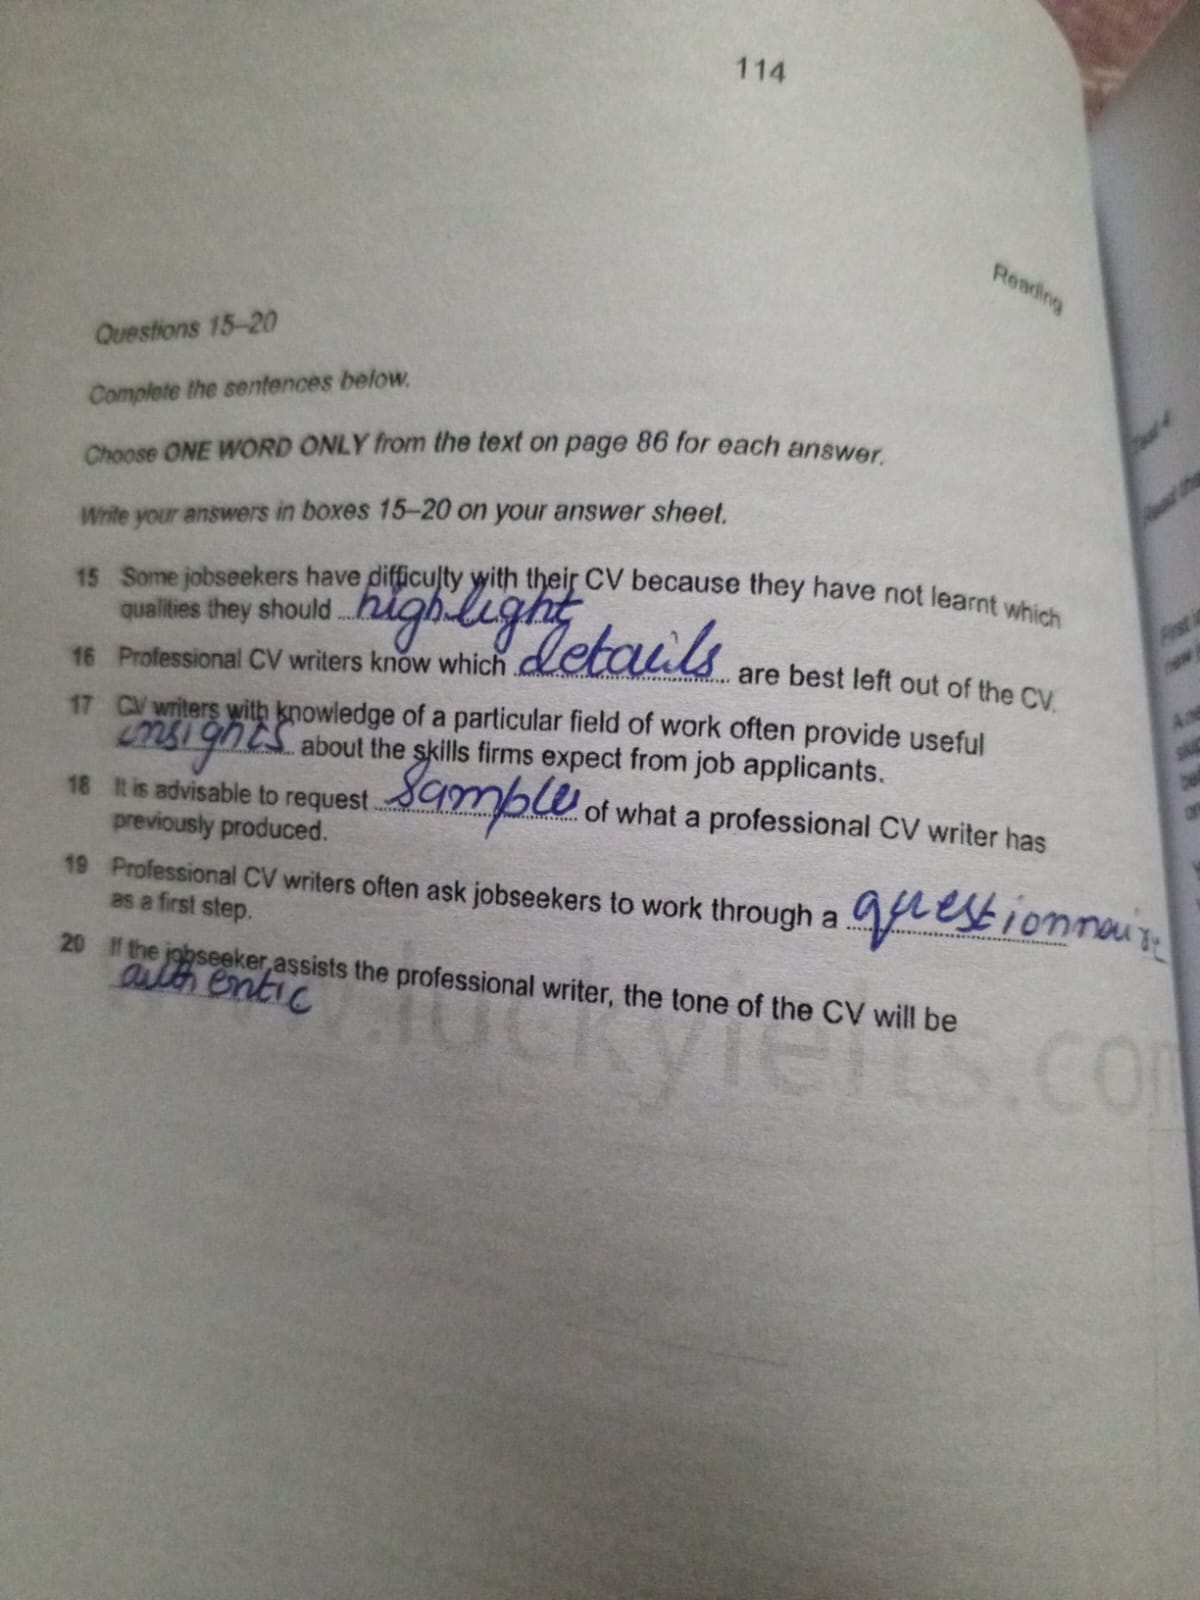 114
Reading
Questions 15–20
Complete the sentences below.
Choose ONE WORD ONLY from the text on page 86 for each answer.
Write your answers in boxes 15–20 on your answer sheet.
15 Some jobseekers have difficulty with their CV because they have not learnt which
qualities they should highlight
16 Professional CV writers know which details are best left out of the CV.
17 CV writers with knowledge of a particular field of work often provide useful
insights about the skills firms expect from job applicants.
18 It is advisable to request samples of what a professional CV writer has
previously produced.
19 Professional CV writers often ask jobseekers to work through a questionnaire
as a first step.
20 If the jobseeker assists the professional writer, the tone of the CV will be
authentic
www.luckyielts.com
Test 4
Read the